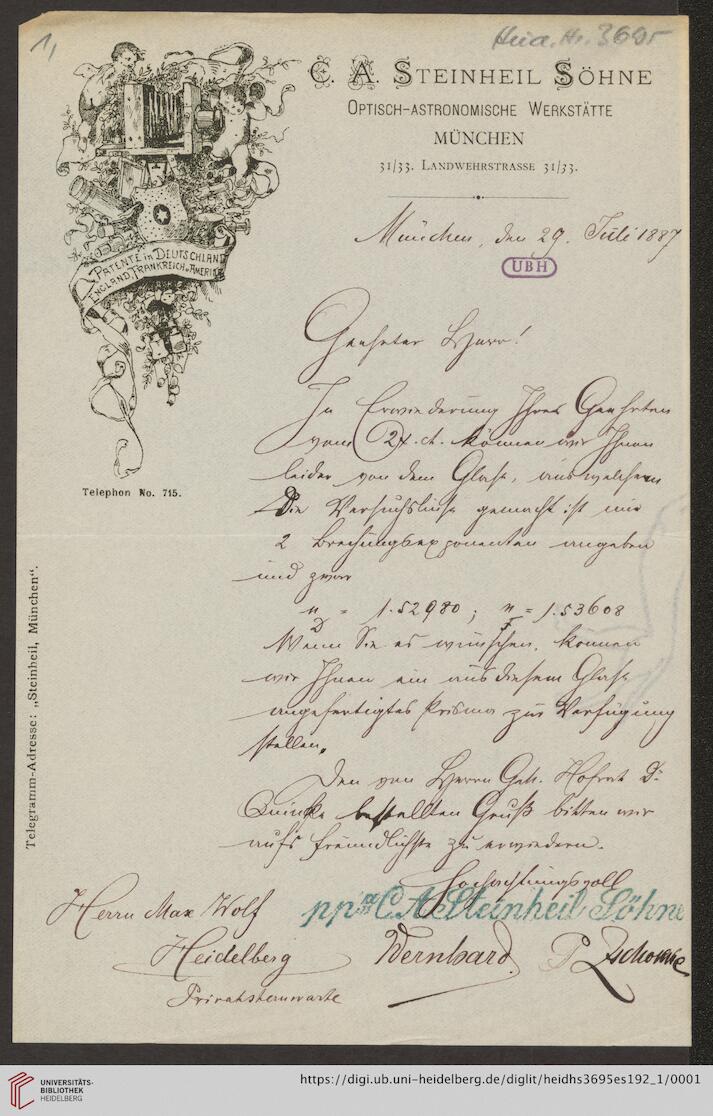 1,
Heid. Hs. 3695
C. A. STEINHEIL SÖHNE
OPTISCH-ASTRONOMISCHE WERKSTÄTTE
MÜNCHEN
31/33. LANDWEHRSTRASSE 31/33.
PATENTE in DEUTSCHLAND
ENGLAND, FRANKREICH u. AMERIKA
München, den 29. Juli 1887
UBH
Geehrter Herr!
In Erwiederung Ihres Geehrten
vom 27. ct. können wir Ihnen
leider von dem Glase, aus welchem
Die Versuchslinse gemacht ist nur
2 Brechungsexponenten angeben
und zwar
n D = 1.52980; n F = 1.53608
Wenn Sie es wünschen, können
wir Ihnen ein aus diesem Glase
angefertigtes Prisma zur Verfügung
stellen.
Den von Herrn Geh. Hofrat Dr.
Quincke bestellten Gruß bitten wir
auf's freundlichste zu erwiedern.
Hochachtungsvoll
ppa C. A. Steinheil Söhne
Wernhard P. Zschokke
Herrn Max Wolf
Heidelberg
Privatsternwarte
Telephon No. 715.
Telegramm-Adresse: „Steinheil, München“.
UNIVERSITÄTS-
BIBLIOTHEK
HEIDELBERG
https://digi.ub.uni-heidelberg.de/diglit/heidhs3695es192_1/0001